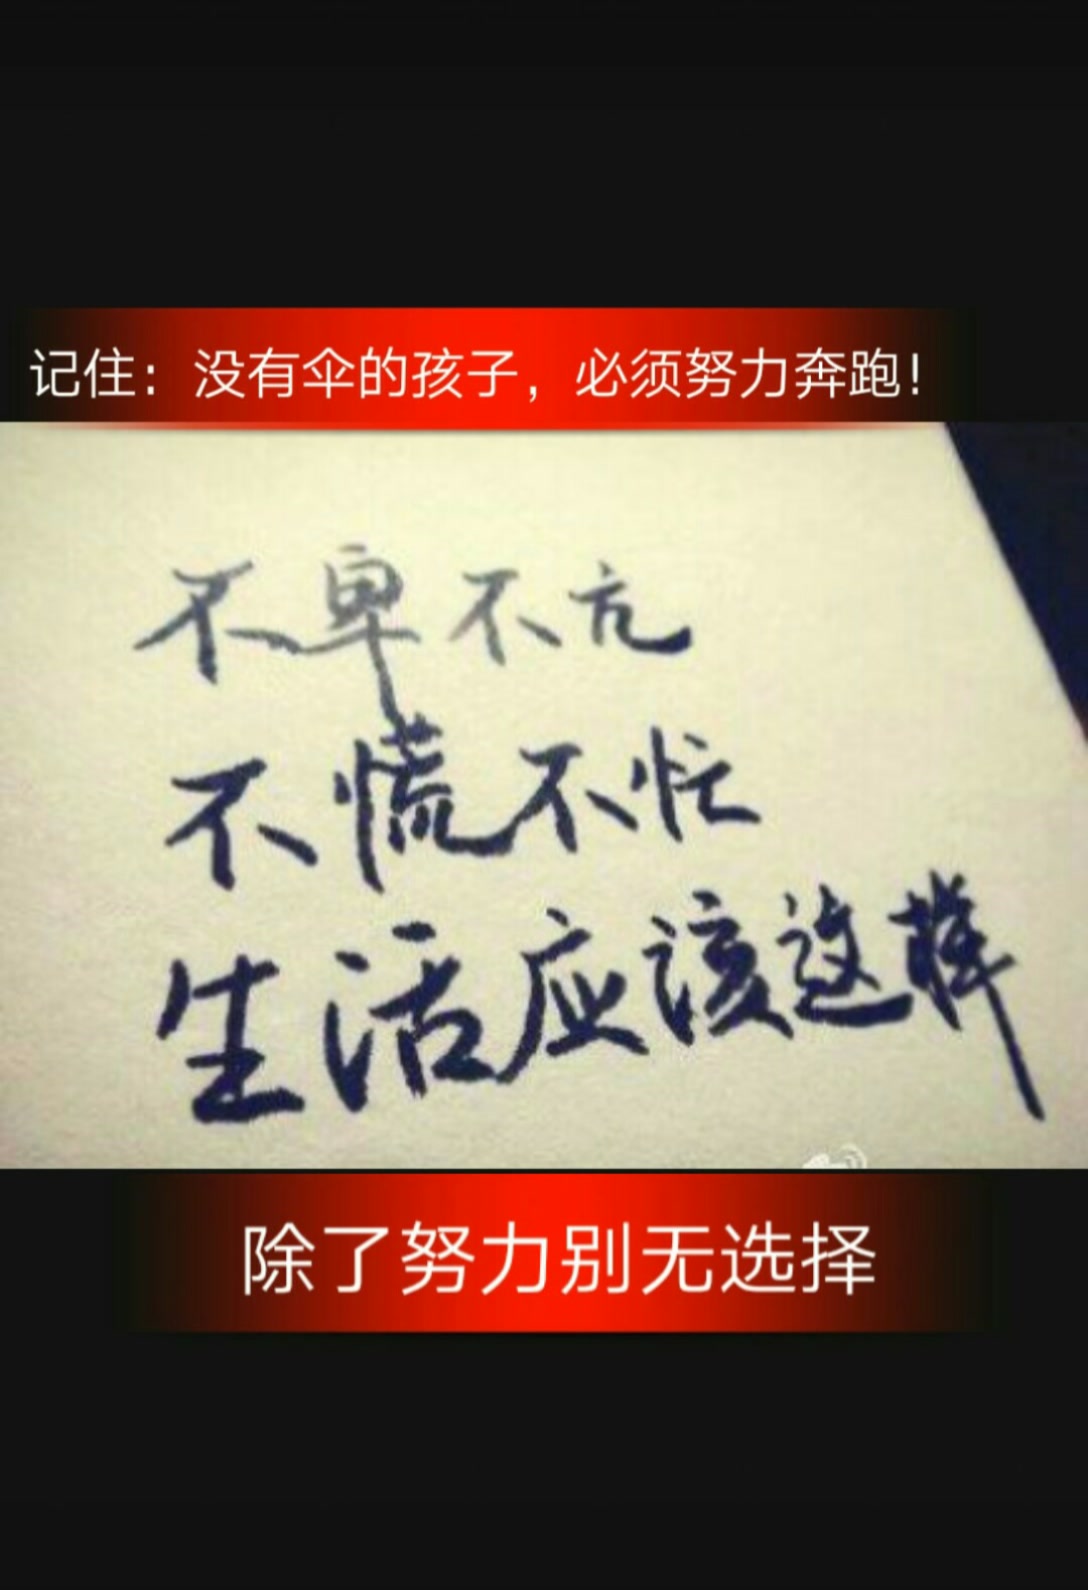 记住：没有伞的孩子，必须努力奔跑！
不卑不亢
不慌不忙
生活应该这样
除了努力别无选择